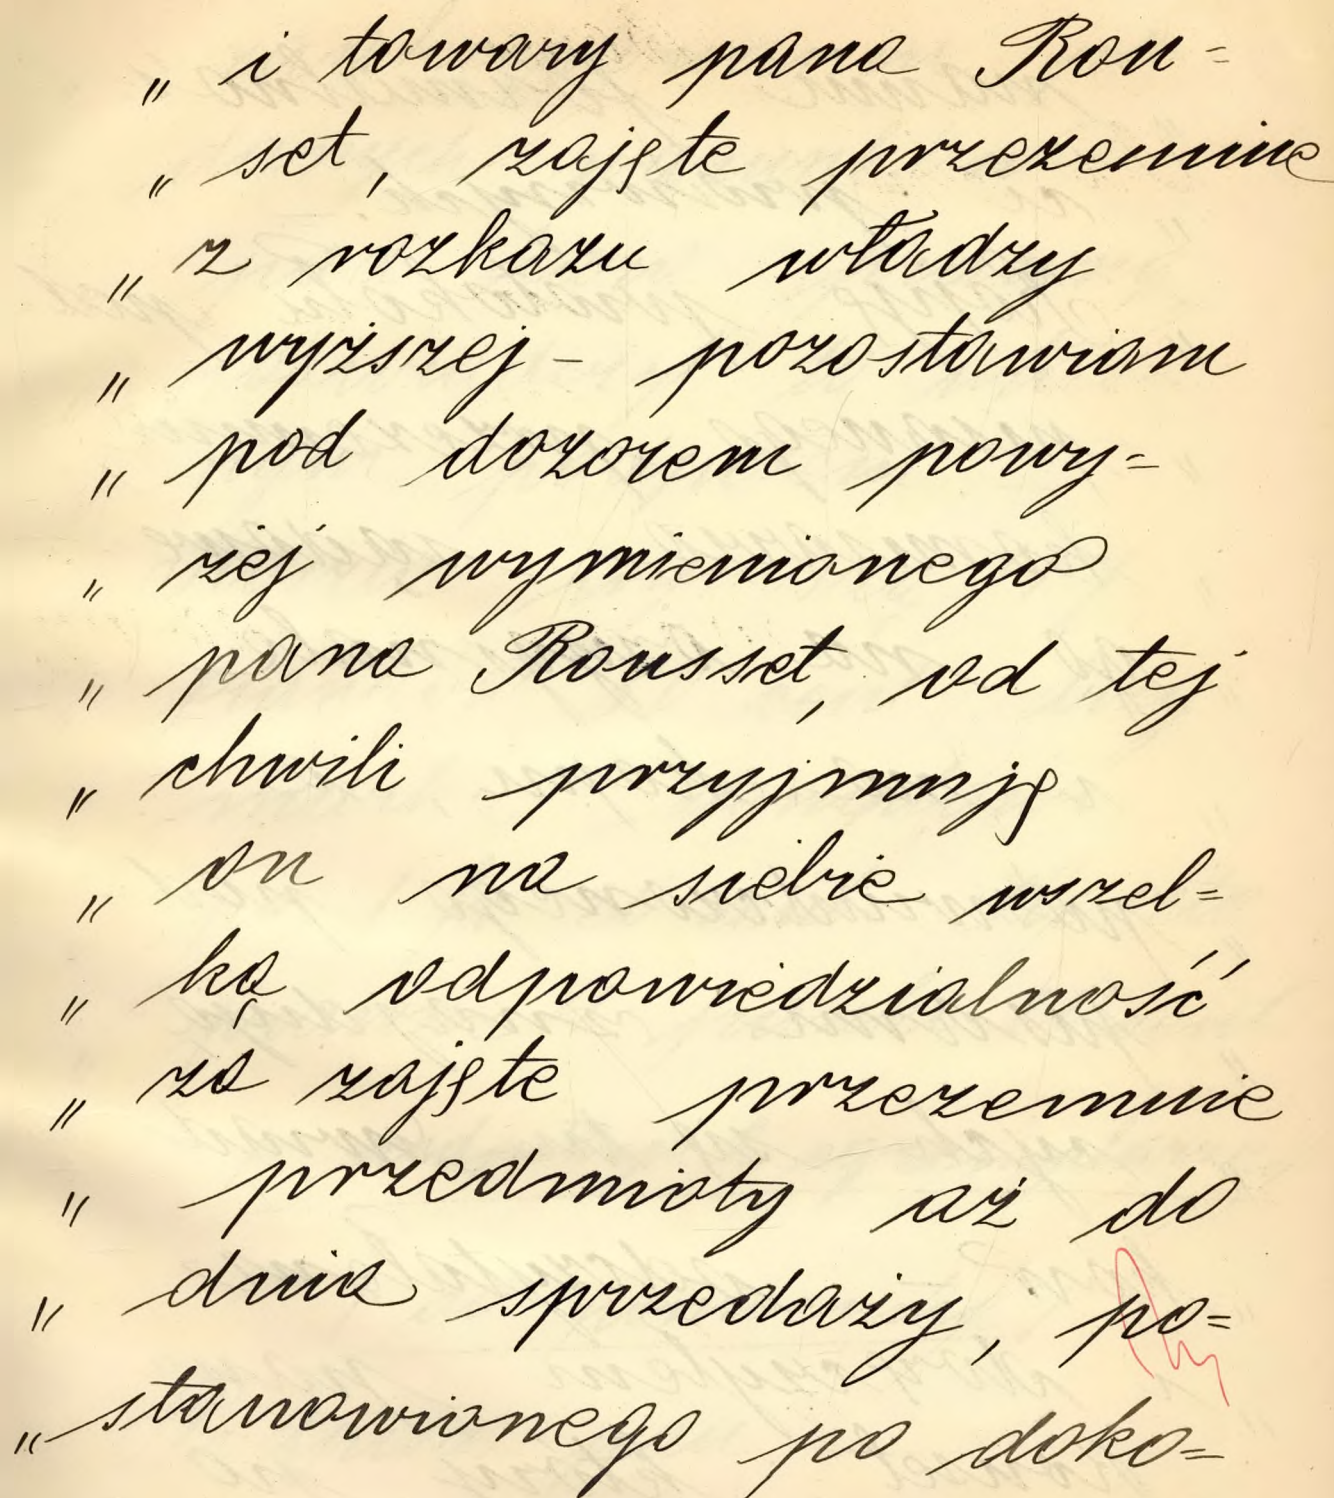 „ i towary pana Rou-
„ set, zajęte przezemnie
„ z rozkazu władzy
„ wyższej – pozostawiam
„ pod dozorem powy=
„ żej wymienionego
„ pana Rousset, od tej
„ chwili przyjmuję
„ on na siebie wszel=
„ ką odpowiedzialność
„ za zajęte przezemnie
„ przedmioty aż do
„ dnia sprzedaży, po=
„ stanowionego po doko=